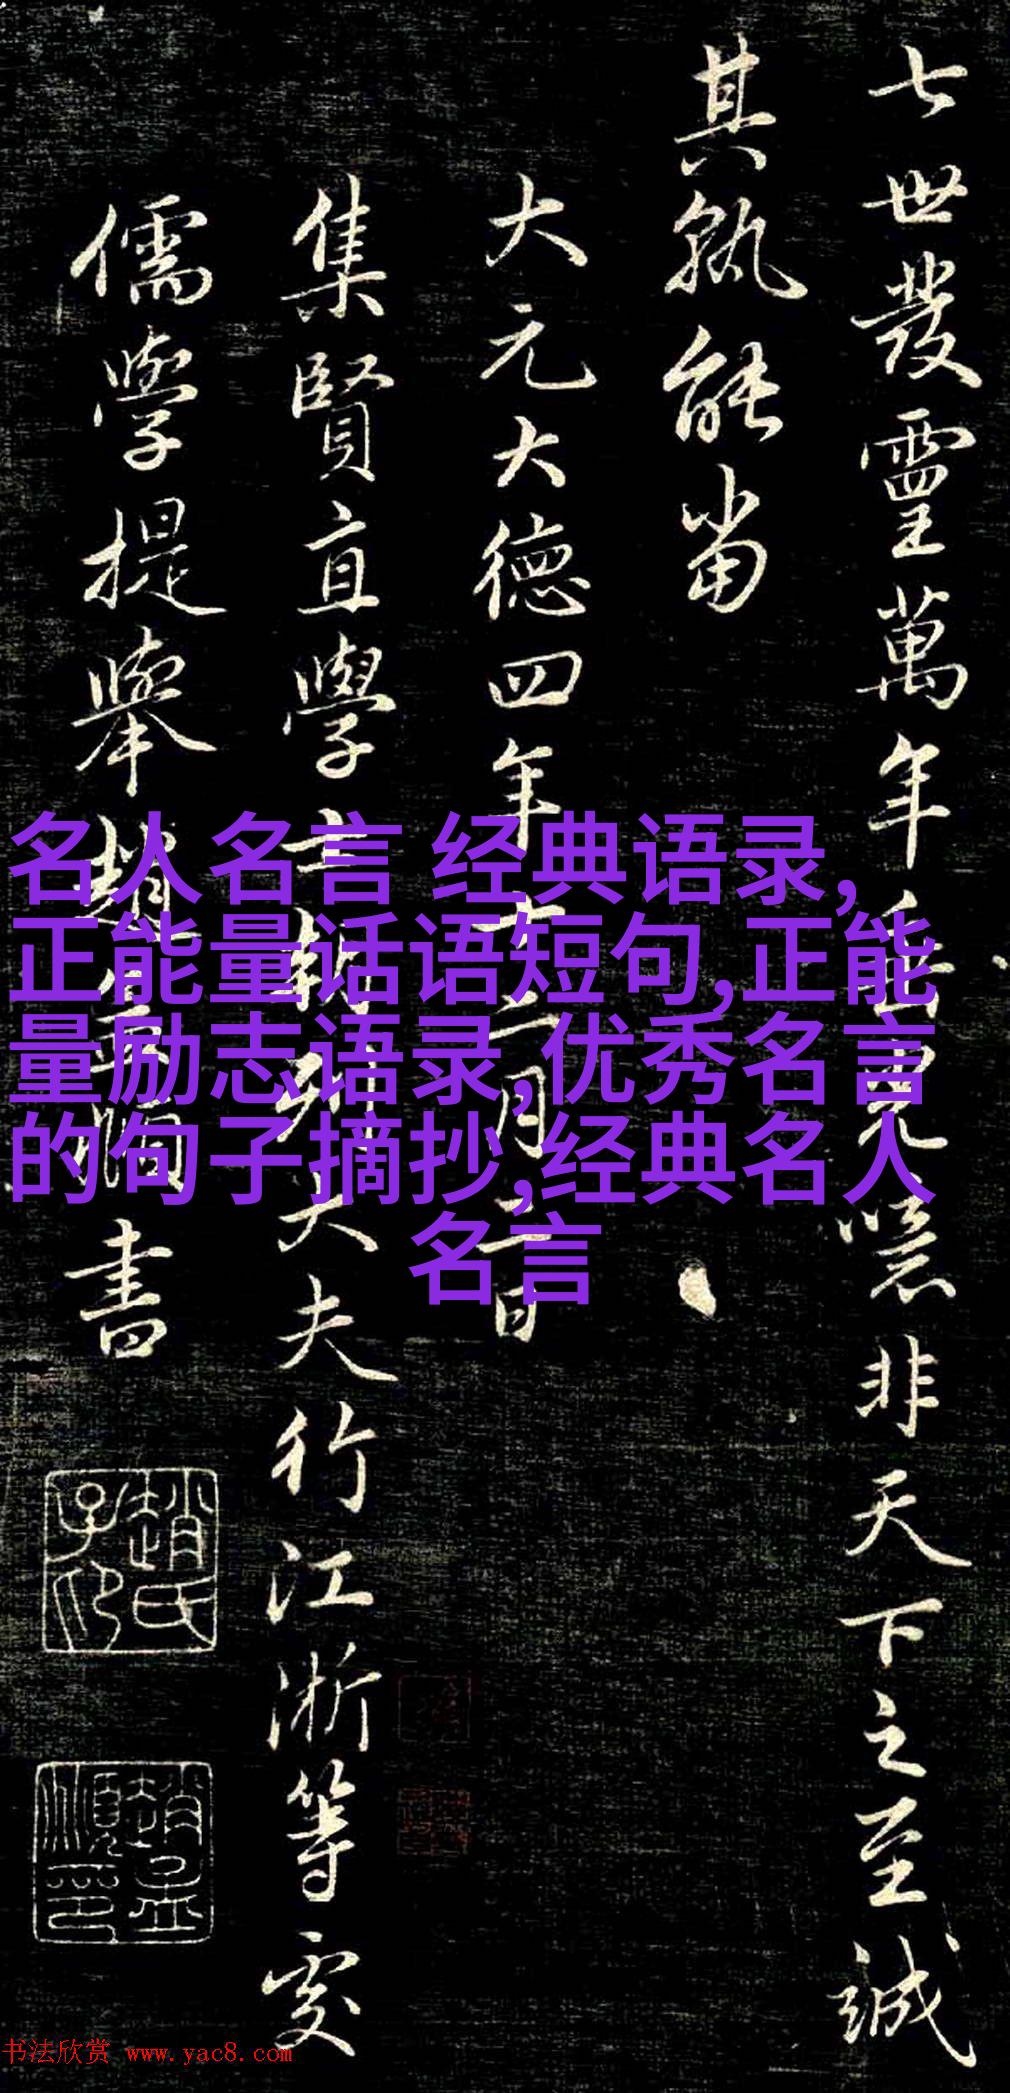 七世發靈萬年 噫非天下之至誠
其孰能當
大元大德四年十二月一日
集賢直學士朝列大夫行江浙等處
儒學提舉趙孟頫書
趙氏子昂
趙孟頫印
名人名言 经典语录,
正能量话语短句,正能
量励志语录,优秀名言
的句子摘抄,经典名人
名言
书法欣赏 www.yac8.com